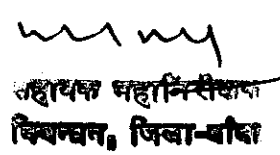 सहायक महानिरीक्षक
निबन्धन, जिला-बाँदा